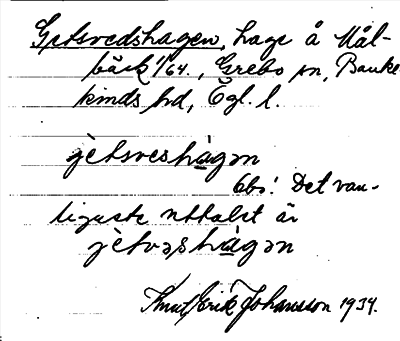 Getsvedshagen, hage å Mål-
bäck 1/64., Grebo sn, Banke-
kinds hd, Ögl. l.
jètsveshàgən
Obs! Det van-
ligaste uttalet är
jètvəshàgən
Knut Erik Johansson 1934.